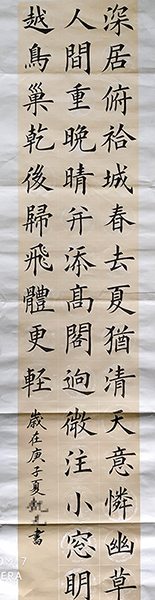 深居俯袷城春去夏猶清天意憐幽草
人間重晚晴并添髙閣逈微注小窓明
越鳥巢乾後歸飛體更輕
歲在庚子夏書
ERA